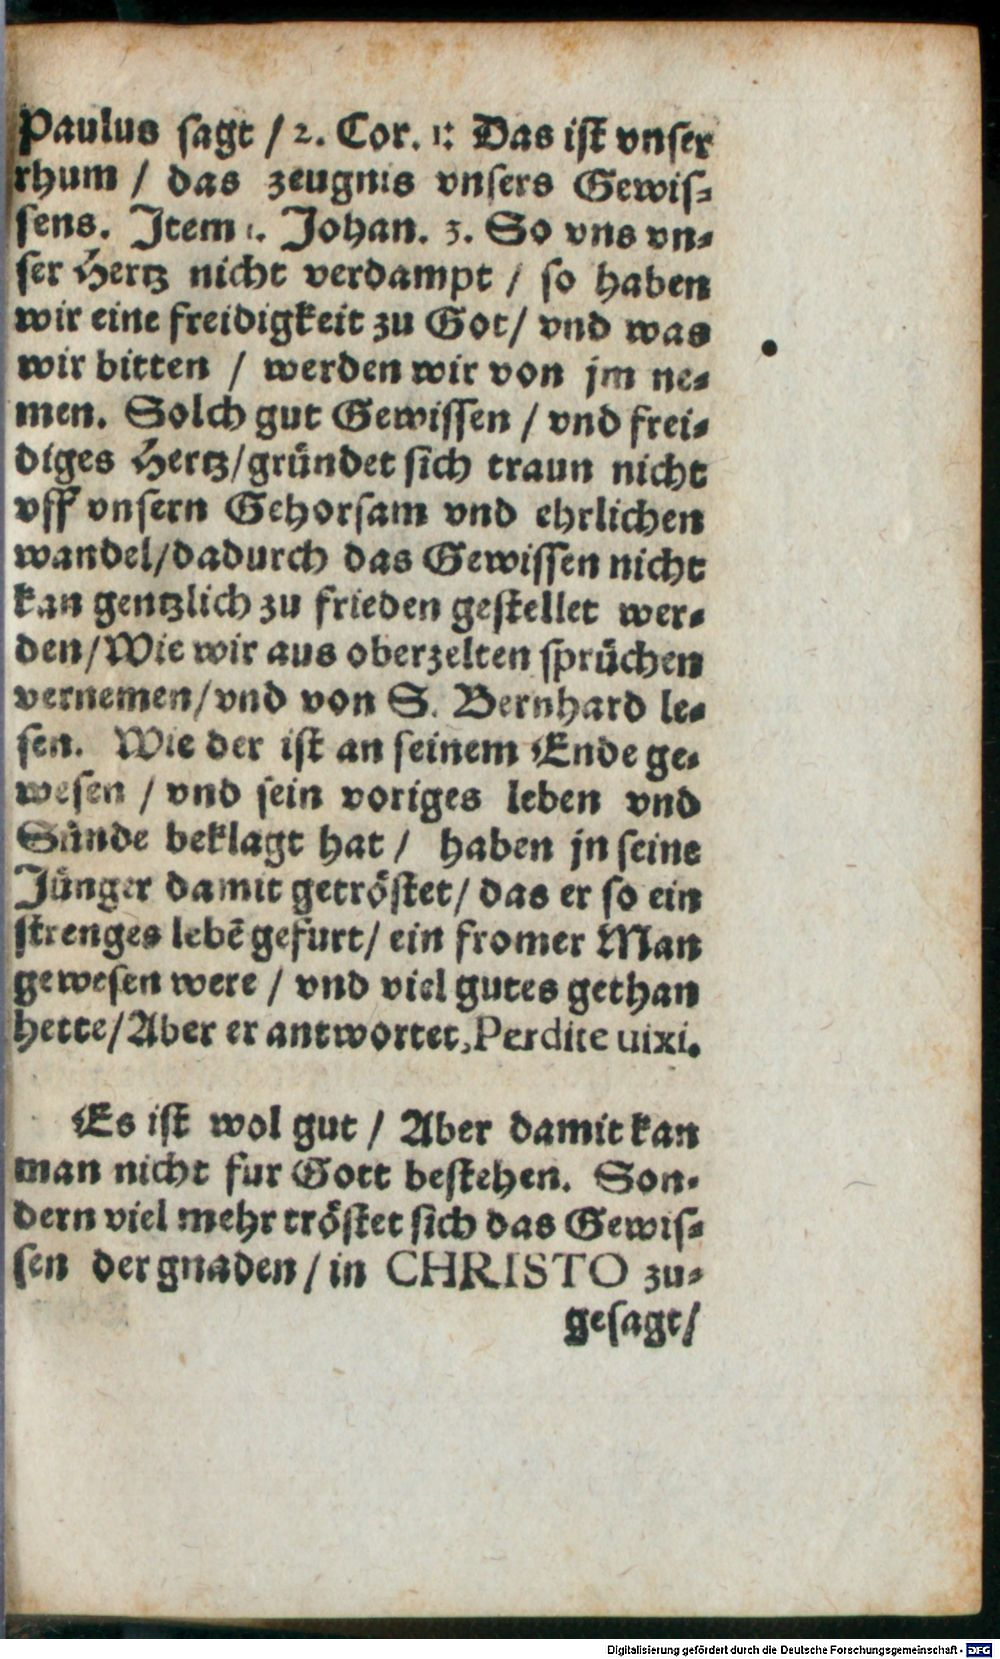 Paulus sagt / 2. Cor. 1: Das ist vnser
rhum / das zeugnis vnsers Gewis-
sens. Item 1. Johan. 3. So vns vn-
ser Hertz nicht verdampt / so haben
wir eine freidigkeit zu Got / vnd was
wir bitten / werden wir von jm ne-
men. Solch gut Gewissen / vnd frei-
diges Hertz / gründet sich traun nicht
vff vnsern Gehorsam vnd ehrlichen
wandel / dadurch das Gewissen nicht
kan gentzlich zu frieden gestellet wer-
den / Wie wir aus oberzelten sprüchen
vernemen / vnd von S. Bernhard le-
sen. Wie der ist an seinem Ende ge-
wesen / vnd sein voriges leben vnd
Sünde beklagt hat / haben jn seine
Jünger damit getröstet / das er so ein
strenges lebē gefurt / ein fromer Man
gewesen were / vnd viel gutes gethan
hette / Aber er antwortet, Perdite uixi.
Es ist wol gut / Aber damit kan
man nicht fur Gott bestehen. Son-
dern viel mehr tröstet sich das Gewis-
sen der gnaden / in CHRISTO zu-
gesagt /
Digitalisierung gefördert durch die Deutsche Forschungsgemeinschaft - DFG